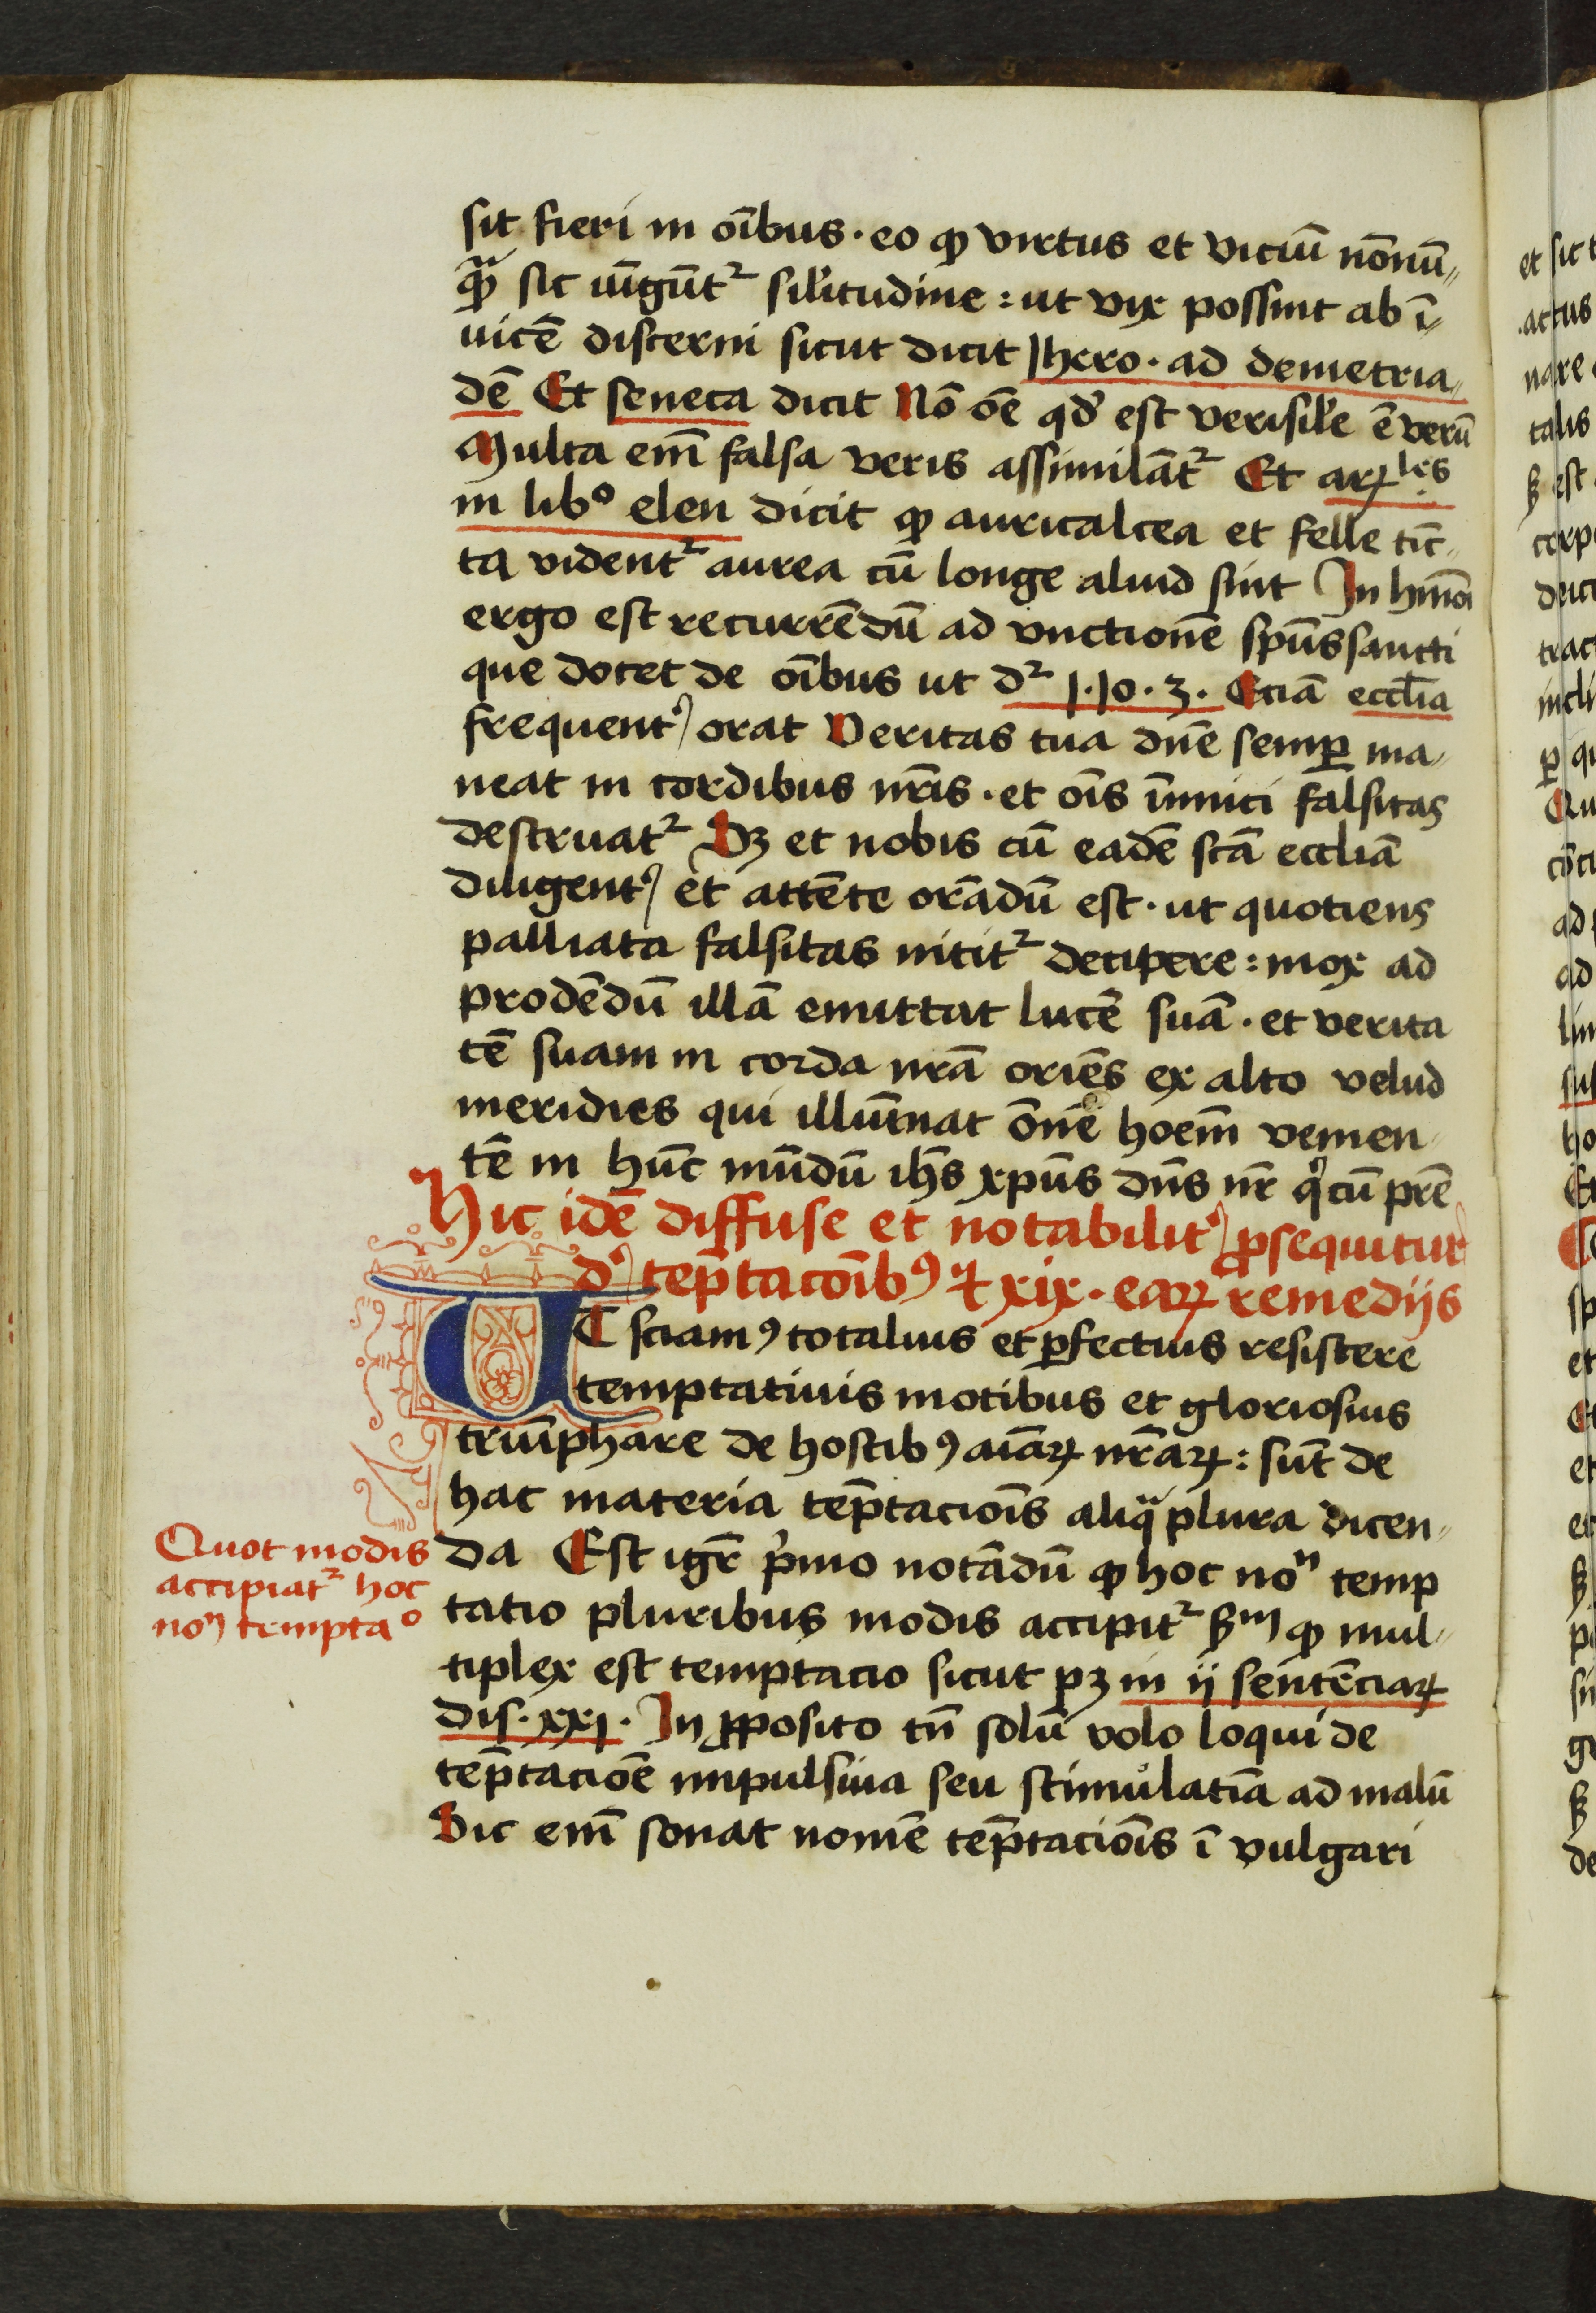 sit fieri in oībus · eo ꝙ virtus et viciū nōnū〃
qᷓꝫ sic iūgūtᷣ silitudine : ut vix possint ab ī〃
uicē discerni sicut dicit Jhero · ad demetria〃
dē Et seneca dicit Nō oē qd' est verisile ē verū
Multa em̄ falsa veris assimilātᷣ Et arꝫles
in libº elen dicit ꝙ auricalcea et felle tīc〃
ta videntᷣ aurea cū longe aliud sint In hmōi
ergo est recurrēdū ad vnctionē spūssancti
que docet de oībus ut dᷣ 1·Jo·3· Eciā eccl̄ia
frequentꝰ orat Veritas tua dn̄e semꝑ ma〃
neat in cordibus nr̄is · et oīs īimici falsitas
destruatᷣ Sꝫ et nobis cū eadē scā eccliā
diligentꝰ et attēte orādū est · ut quotiens
palliata falsitas nititᷣ decipere : mox ad
prodēdū illā emittat lucē suā · et verita
tē suam in corda nrā oriēs ex alto velud
meridies qui illuīnat ōnē hoēm venien〃
tē in hūc mūdū ih̄s xp̄us dn̄s nr̄ qͥ cū pr̄e
Hic idē diffuse et notabilitꝰ ꝓsequitur
dꝰ tēptacoībꝰ ⁊ xix · eaꝝ remedijs
UT sciamꝰ totalius et ꝑfectius resistere
temptatiuis motibus et gloriosius
triūphare de hostibꝰ aīaꝝ nr̄aꝝ : sūt de
hac materia tēptacioīs aliqᷓ plura dicen〃
da Est igr̄ pͥmo notādū ꝙ hoc noⁿ temp
tatio pluribus modis accipitᷣ ẞm ꝙ mul〃
tiplex est temptacio sicut pꝫ in ij sentēciaꝝ
dis·xxj· In ꝓposito tn̄ solū volo loqui de
tēptacioē impulsiua seu stimulatīa ad malū
Sic em̄ sonat nomē tēptacioīs ī vulgari
Quot modis
accipiatᷣ hoc
noⁿ temptaº